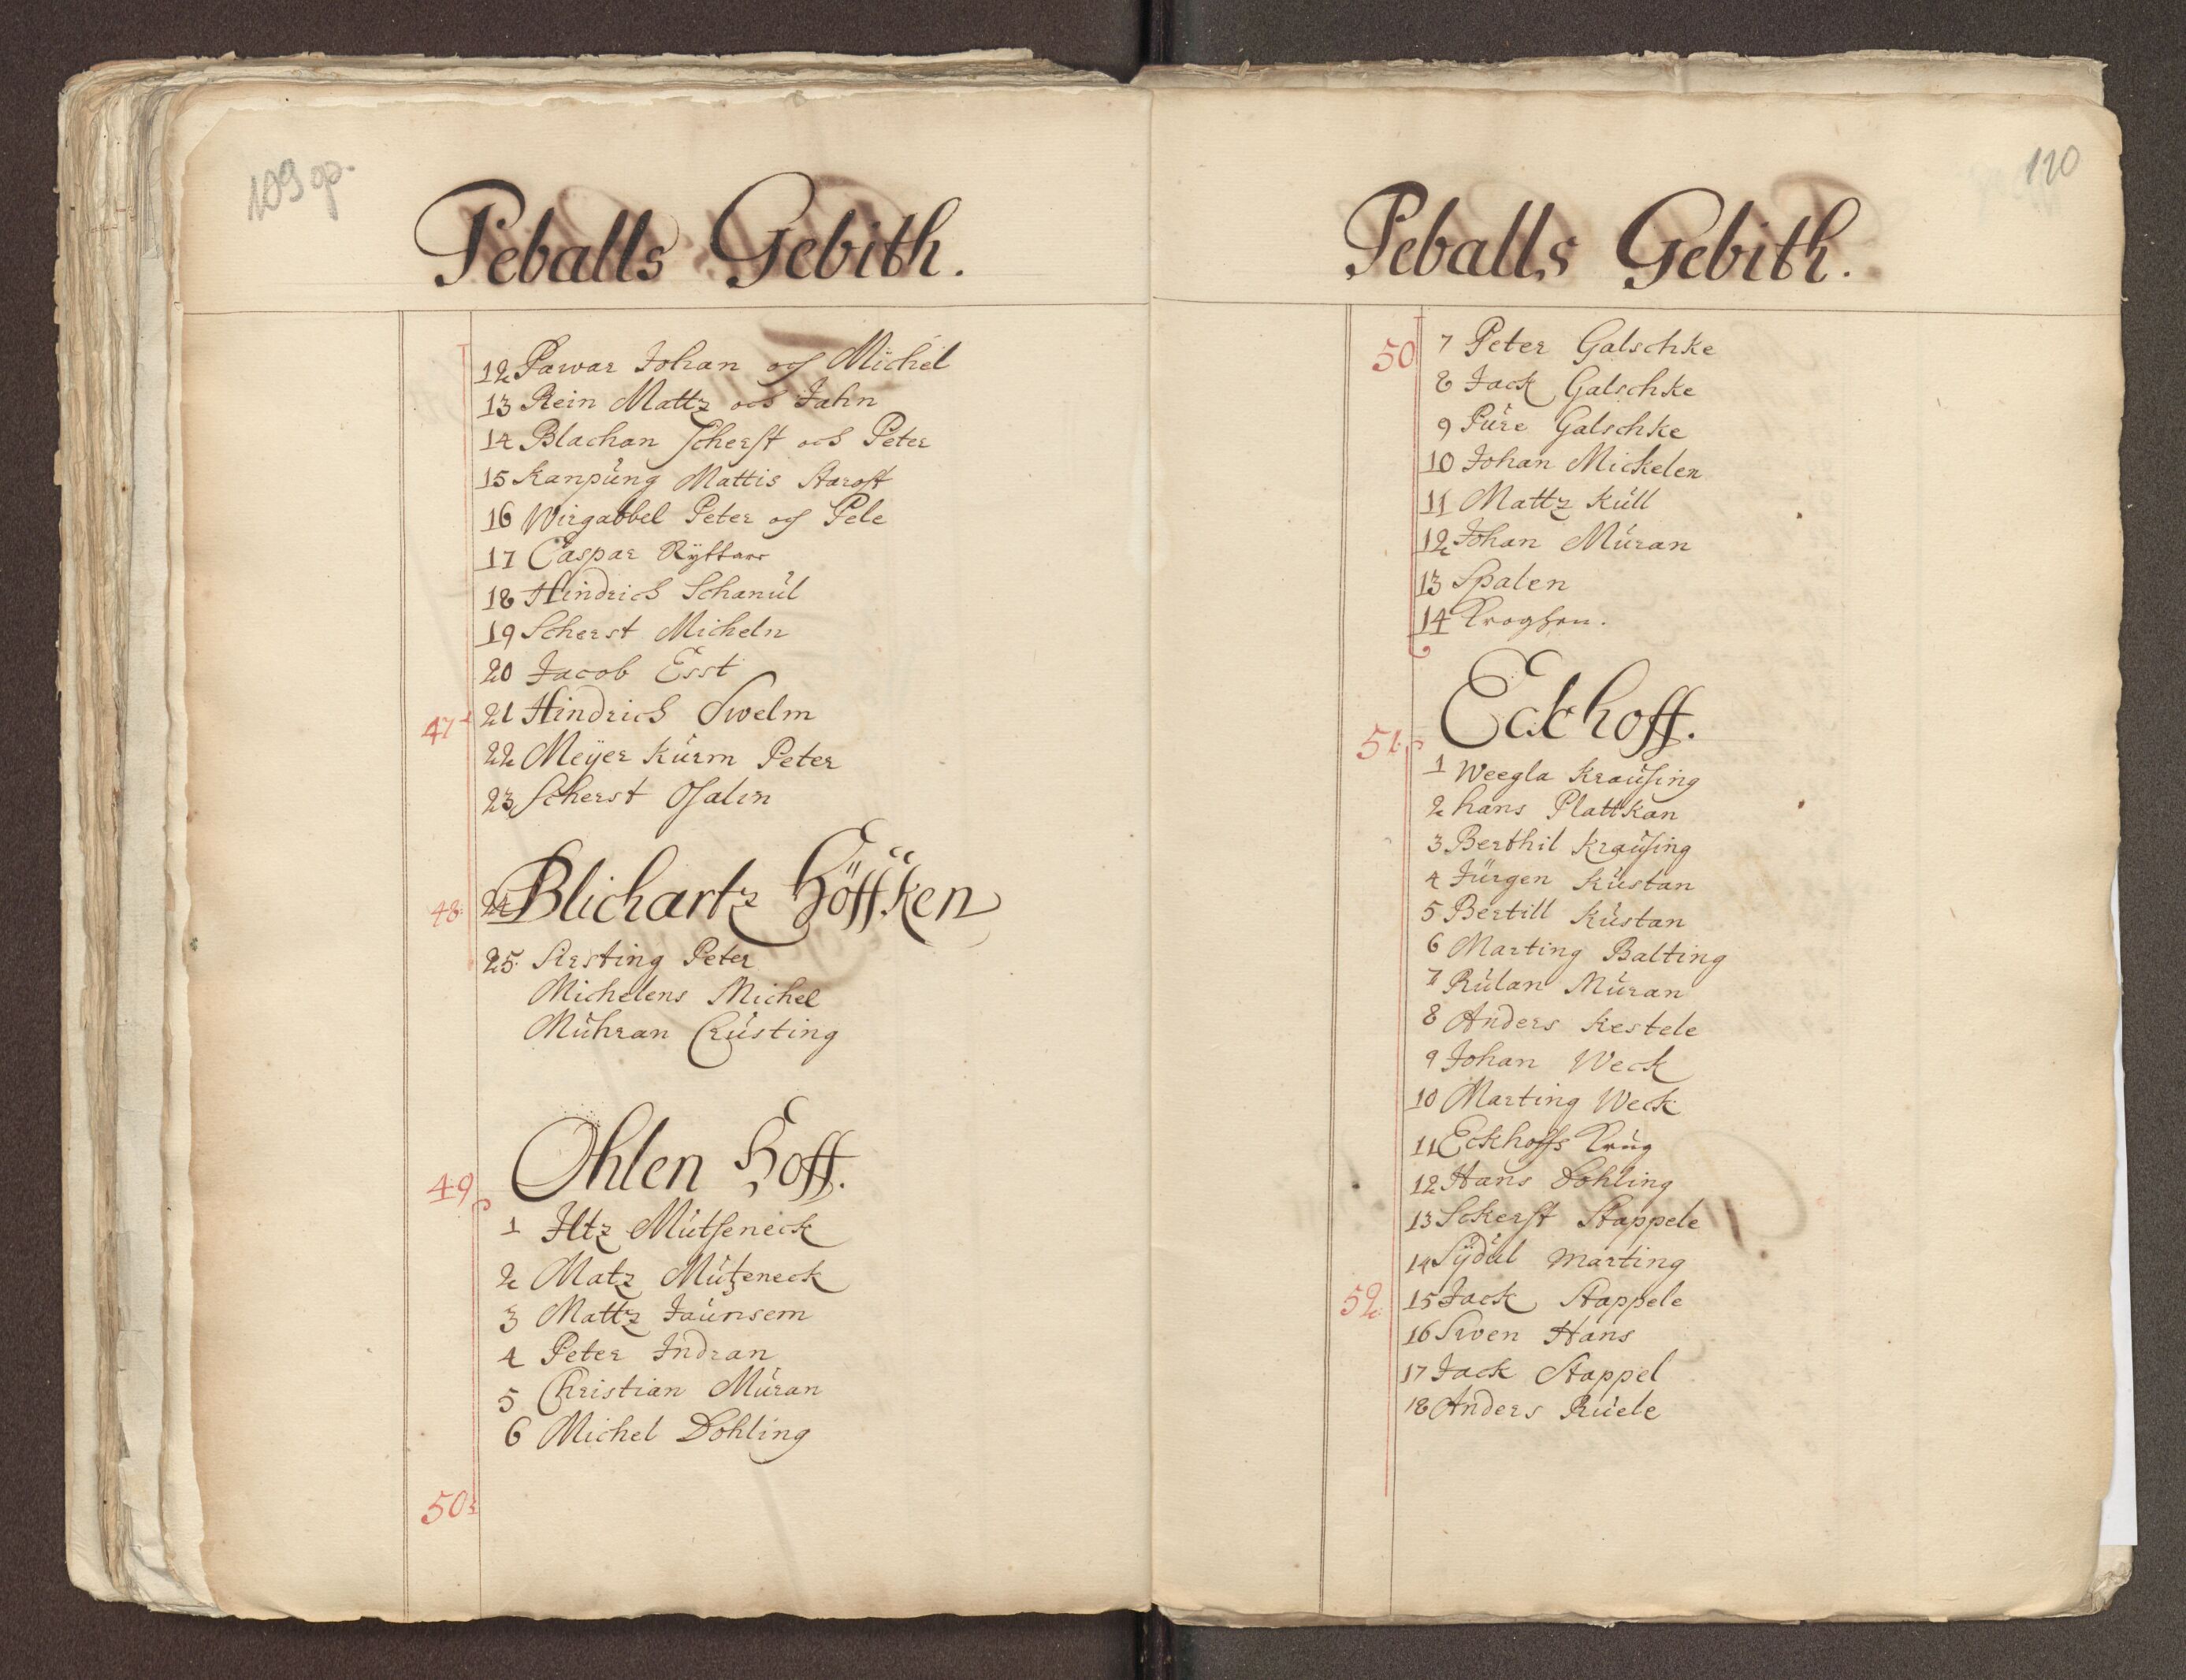 109 op.
Peballs Gebith.
12 Pawar Johan och Michel
13 Rein Mattz och Jahn
14 Blachan Scherst och Peter
15 Kanpüng Mattis Starost
16 Wirgabbel Peter och Pele
17 Caspar Ryttare
18 Hindrich Schanül
19 Scherst Micheln
20 Jacob Esst
47 21 Hindrich Swelm
22 Meÿer Kürm Peter
23 Scherst Osalin
48 24 Blichartz Höffken
25 Kirsting Peter
Michelens Michel
Mühran Crüsting
49 Ohlen Hoff.
1 Iltz Mütseneck
2 Matz Mützeneck
3 Mattz Jaünsem
4 Peter Indran
5 Christian Müran
6 Michel Dohling
50
110
Peballs Gebith.
50 7 Peter Galschke
8 Jack Galschke
9 Püre Galschke
10 Johan Mickelen
11 Mattz Küll
12 Johan Müran
13 Spalen
14 Kroghen.
Eckhoff.
51 1 Weegla Kraüsing
2 hans Plattkan
3 Berthil Kraüsing
4 Jürgen Küstan
5 Bertill Küstan
6 Marting Balting
7 Rülan Müran
8 Anders Kestele
9 Johan Weck
10 Marting Weck
11 Eckhoffs Krüg
12 Hans Dohling
13 Skerst Stappele
14 Sÿdül Marting
52 15 Jack Stappele
16 Swen Hans
17 Jack Stappel
18 Anders Rüele